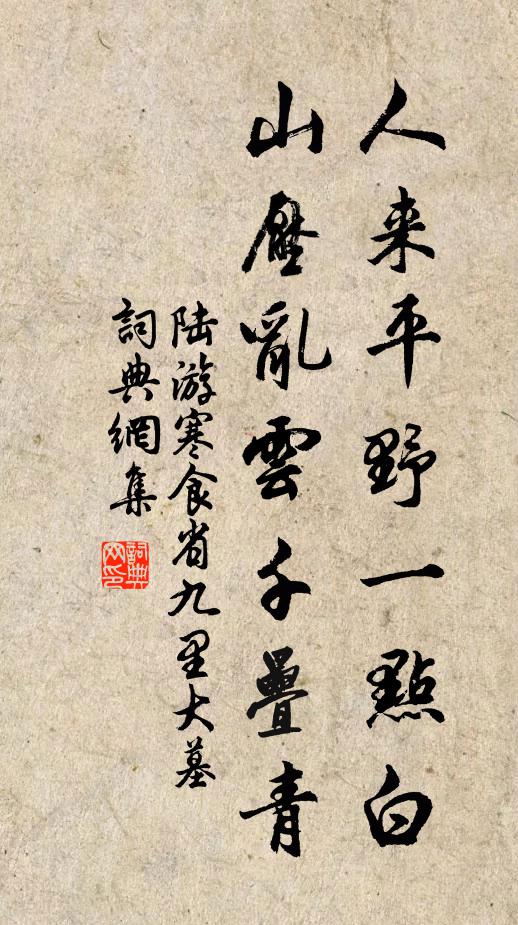 人来平野一點白
山壓亂雲千疊青
陆游寒食省九里大墓
詞典網集
詞典网印